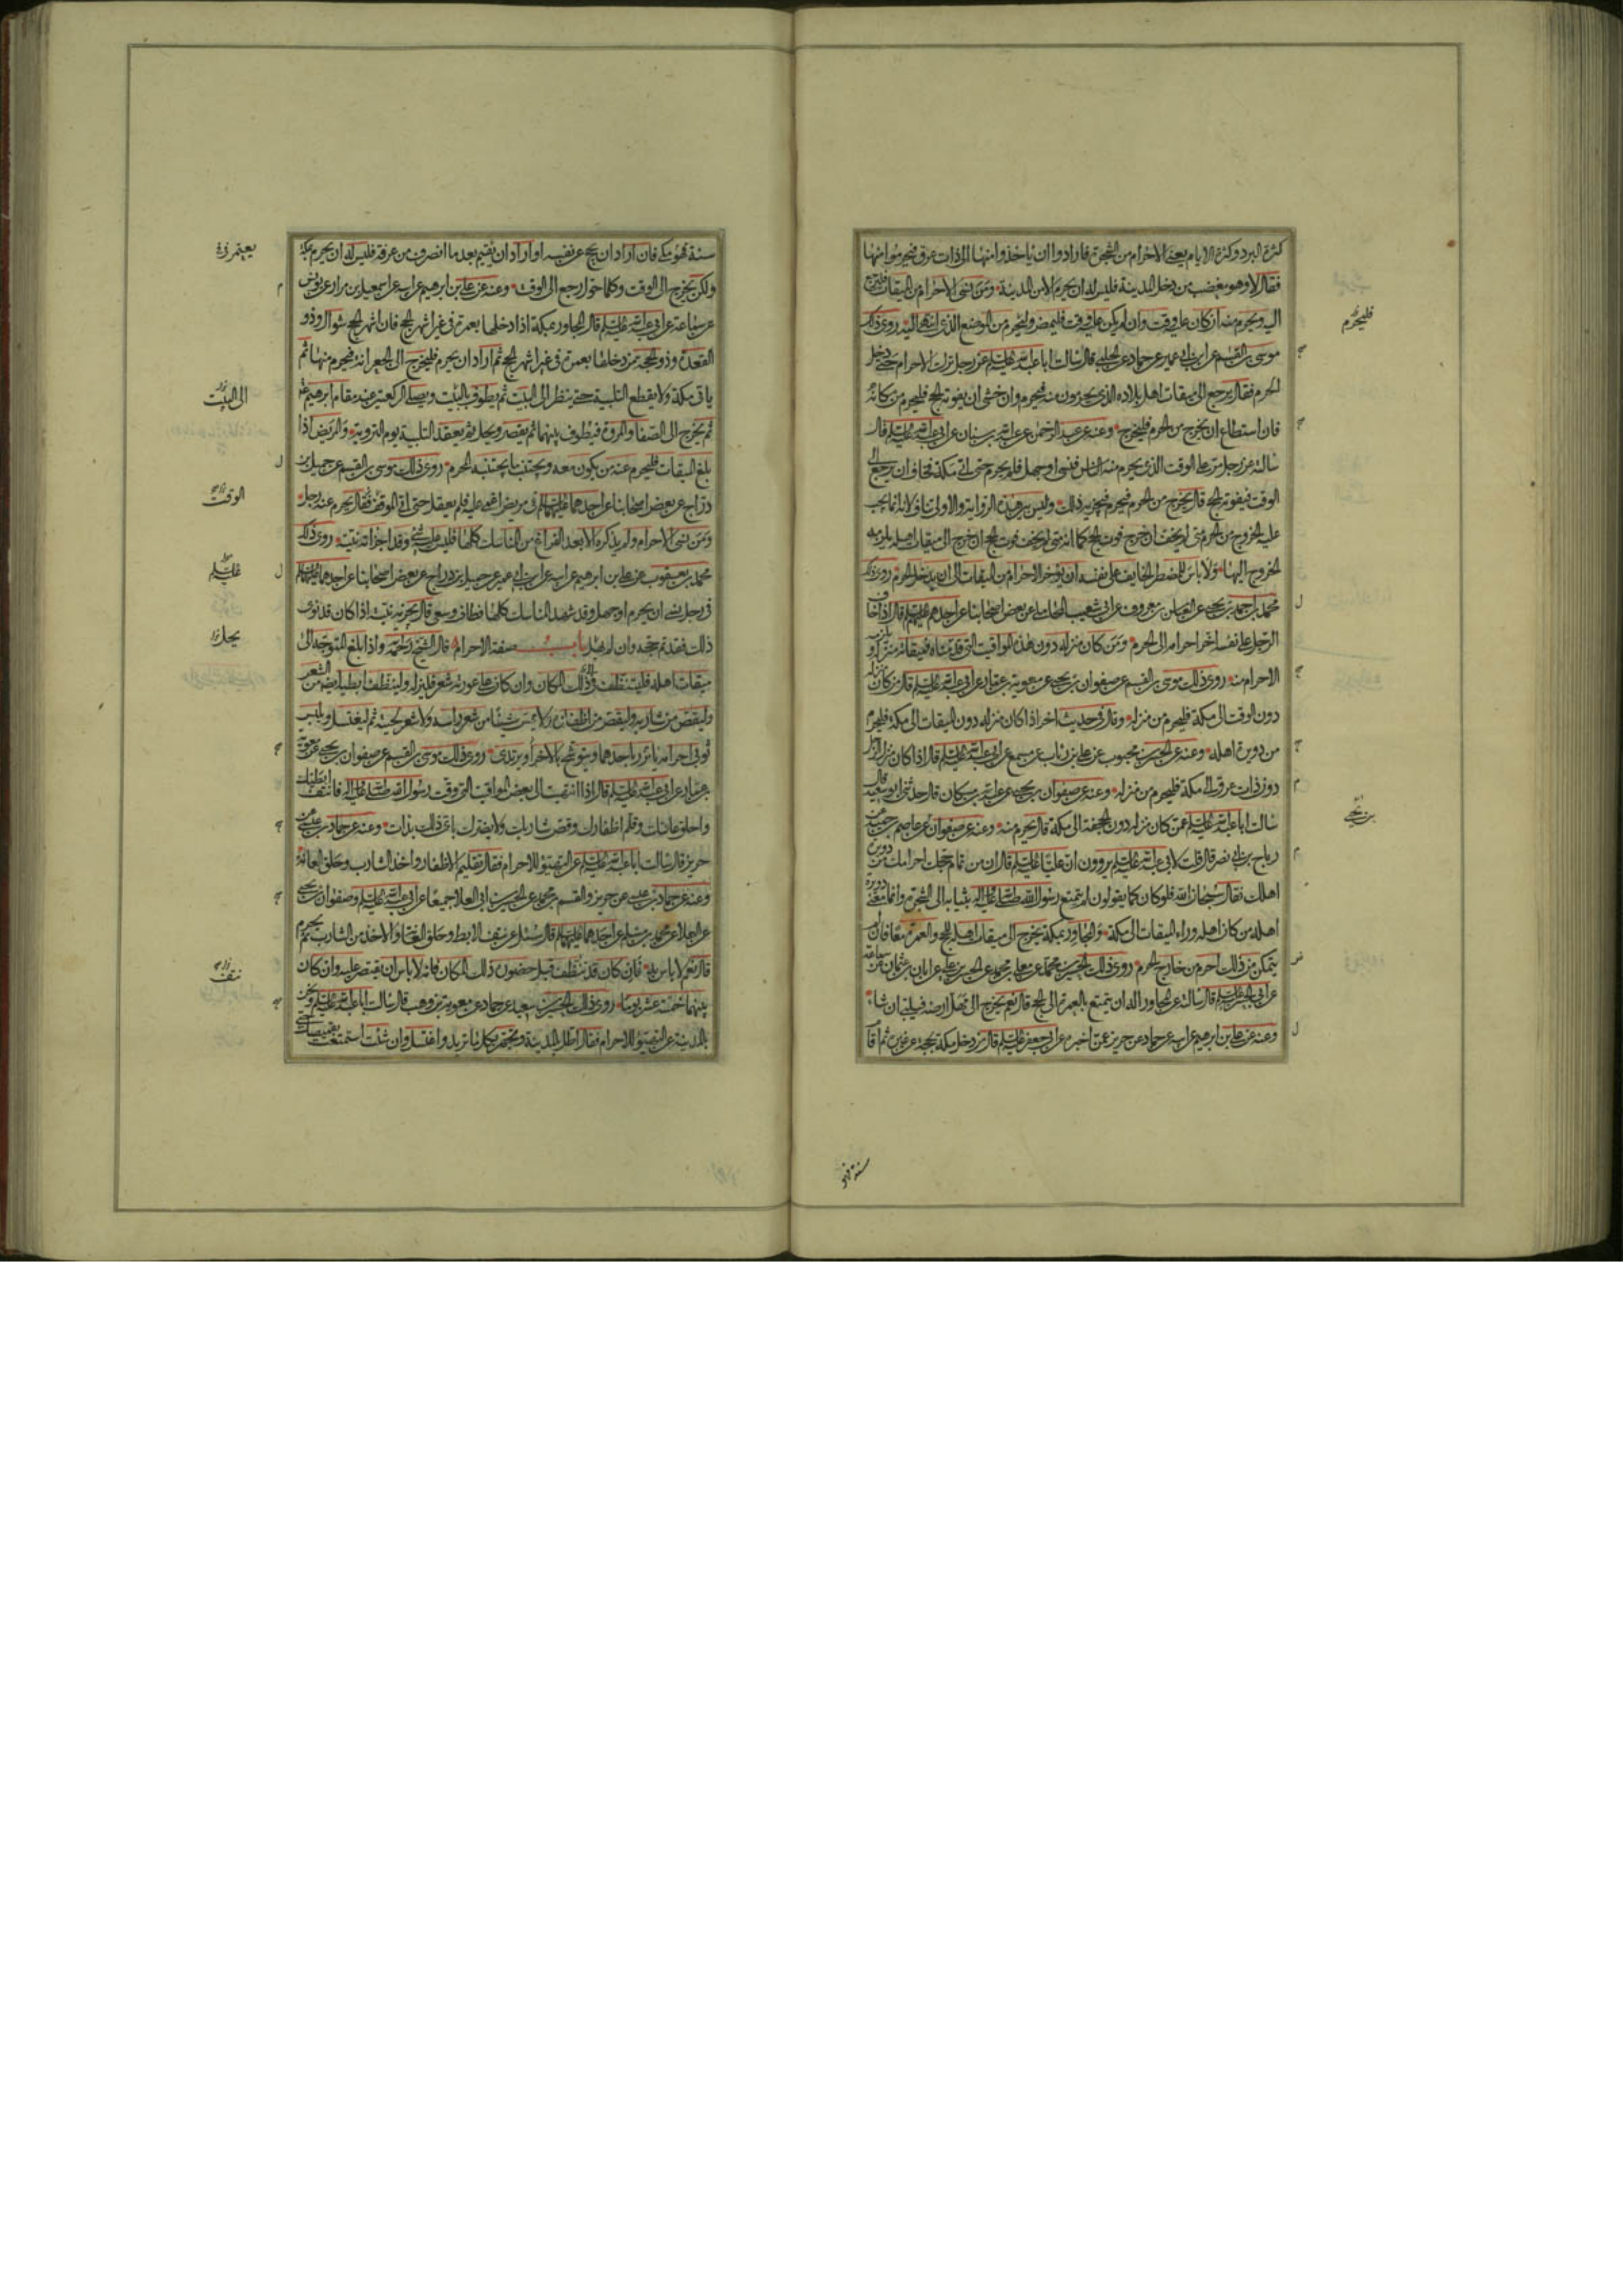 كثرة البرد وكثرة الايام يعني الاحرام من الشجرة فارادوا ان ياخذوا منها الى ذات عرق فيحرموا منها
فقال لا وهو مغضب من دخل المدينة فليس له ان يحرم الا من المدينة ومن نسي الاحرام من الميقات فليرجع
اليه ويحرم منه ان كان عليه وقت وان لم يكن عليه وقت فليمض وليحرم من الموضع الذي انتهى اليه روى ذلك
موسى بن القسم عن ابن ابي عمير عن حماد عن الحلبي قال سالت ابا عبد الله عليلم عن رجل ترك الاحرام حتى دخل
الحرم فقال يرجع الى ميقات اهل بلاده الذي يحرمون منه فيحرم وان خشي ان يفوته الحج فليحرم من مكانه
فان استطاع ان يخرج من الحرم فليخرج وعنه عن عبد الرحمن عن عبد الله بن سنان عن ابي عبد الله عليلم قال
سالته عن رجل مر على الوقت الذي يحرم منه الناس فنسي او جهل فلم يحرم حتى اتى مكة فخاف ان يرجع الى
الوقت فيفوته الحج قال يخرج من الحرم فيحرم فيجزيه ذلك وليس بين هذه الرواية والاولى تناف لانه انما يجب
عليه الخروج من الحرم متى لم يخف ان خرج فوت الحج كما انه متى لم يخف فوت الحج ان خرج الى ميقات اهله يلزمه
الخروج اليها ولا باس للمضطر الخايف على نفسه ان يؤخر الاحرام من الميقات الى ان يدخل الحرم روى ذلك
محمد بن احمد بن يحيى عن العباس بن معروف عن ابي شعيب المحاملي عن بعض اصحابنا عن احدهم عليلم قال اذا خاف
الرجل على نفسه اخر احرامه الى الحرم ومن كان منزله دون هذه المواقيت التي قدمناه فميقاته منزله و
الاحرام منه روى ذلك موسى بن القسم عن صفوان بن يحيى عن معوية بن عمار عن ابي عبد الله عليلم قال من كان منزله
دون الوقت الى مكة فليحرم من منزله وقال في حديث اخر اذا كان منزله دون الميقات الى مكة فليحرم
من دويرة اهله وعنه عن الحسن بن محبوب عن علي بن رئاب عن مسمع عن ابي عبد الله عليلم قال اذا كان منزل الرجل
دون ذات عرق الى مكة فليحرم من منزله وعنه عن صفوان بن يحيى عن عبد الله بن مسكان قال حدثني ابو سعيد قال
سالت ابا عبد الله عليلم عمن كان منزله دون الجحفة الى مكة قال يحرم منه وعنه عن صفوان عن عاصم بن حميد عن
رباح بن ابي نصر قال قلت لابي عبد الله عليلم يروون ان عليا عليلم قال ان من تمام حجك احرامك من دويرة
اهلك فقال سبحان الله فلو كان كما يقولون لم يتمتع رسول الله صلى الله عليه واله بثيابه الى الشجرة وانما معنى دويرة
اهله من كان اهله وراء الميقات الى مكة والمجاور بمكة يخرج الى ميقات اهله للحج والعمرة معا فان لم
يتمكن من ذلك احرم من خارج الحرم روى ذلك الحسين بن محمد عن معلى بن محمد عن الحسن بن علي عن ابان بن عثمان عن سماعة
عن ابي الحسن عليلم قال سالته عن المجاور اله ان يتمتع بالعمرة الى الحج قال نعم يخرج الى مهل ارضه فيلبي ان شاء
وعنه عن علي بن ابرهيم عن ابيه عن حماد عن حريز عمن اخبره عن ابي جعفر عليلم قال من دخل مكة بحجة عن غيره ثم اقام
فليحرم
بن يحيى
سنة فهو
سنة فهو مكي فان اراد ان يحج عن نفسه او اراد ان يقيم بعد ما انصرف من عرفة فليس له ان يحرم بمكة
ولكن يخرج الى الوقت وكلما حول رجع الى الوقت وعنه عن علي بن ابرهيم عن ابيه عن اسمعيل بن مرار عن يونس
عن سماعة عن ابي عبد الله عليلم قال المجاور بمكة اذا دخلها بعمرة في غير اشهر الحج فان اشهر الحج شوال وذو
القعدة وذو الحجة من دخلها بعمرة في غير اشهر الحج ثم اراد ان يحرم فليخرج الى الجعرانة فيحرم منها ثم
ياتي مكة ولا يقطع التلبية حتى ينظر الى البيت ثم يطوف بالبيت ويصلي الركعتين عند مقام ابرهيم
ثم يخرج الى الصفا والمروة فيطوف بينهما ثم يقصر ويحل ثم يعقد التلبية يوم التروية والمريض اذا
بلغ الميقات فليحرم عنه من يكون معه ويجتنب ما يجتنبه المحرم روى ذلك موسى بن القسم عن جميل بن
دراج عن بعض اصحابنا عن احدهما عليهما في مريض اغمي عليه فلم يعقل حتى اتى الموقف فقال يحرم عنه رجل
ومن نسي الاحرام ولم يذكره الا بعد الفراغ من المناسك كلها فليس عليه شيء وقد اجزاته نيته روى ذلك
محمد بن يعقوب عن علي بن ابرهيم عن ابيه عن ابن ابي عمير عن جميل بن دراج عن بعض اصحابنا عن احدهما عليهما
في رجل نسي ان يحرم او جهل وقد شهد المناسك كلها فطاف وسعى قال يجزيه نيته اذا كان قد نوى
ذلك فقد تم حجه وان لم يهل باب صفة الاحرام قال الشيخ رحمه واذا بلغ المتوجه الى
ميقات اهله فليتنظف في ذلك المكان وان كان على عورته شعر فليزله ولينظف ابطيه ايضا من الشعر
وليقص من شاربه وليقص من اظفاره ولا يمس شيئا من شعر راسه ولا شعر لحيته ثم ليغتسل ويلبس
ثوبي احرامه ياتزر باحدهما ويتوشح بالاخر او يرتدي روى ذلك موسى بن القسم عن صفوان بن يحيى عن معوية
بن عمار عن ابي عبد الله عليلم قال اذا انتهيت الى بعض المواقيت التي وقت رسول الله صلى الله عليه واله فانتف ابطيك
واحلق عانتك وقلم اظفارك وقص شاربك ولا يضرك باي ذلك بدات وعنه عن حماد بن عيسى عن
حريز قال سالت ابا عبد الله عليلم عن التهيؤ للاحرام فقال تقليم الاظفار واخذ الشارب وحلق العانة
وعنه عن حماد بن عيسى عن حريز والقسم بن محمد عن الحسين بن ابي العلا جميعا عن ابي عبد الله عليلم وصفوان بن يحيى
عن العلا عن محمد بن مسلم عن احدهما عليهما قال سئل عن نتف الابط وحلق العانة والاخذ من الشارب ثم يحرم
قال نعم لا باس به فان كان قد تنظف قبل حضوره ذلك المكان فانه لا باس ان يقتصر عليه وان كان
بينهما خمسة عشر يوما روى ذلك الحسين بن سعيد عن حماد عن معوية بن وهب قال سالت ابا عبد الله عليلم ونحن
بالمدينة عن التهيؤ للاحرام فقال اطل بالمدينة وتجهز بكل ما تريد واغتسل وان شئت استمتعت بقميصك حتى
يعتمر
الى البيت
الوقت
عليلم
يحل
نتف